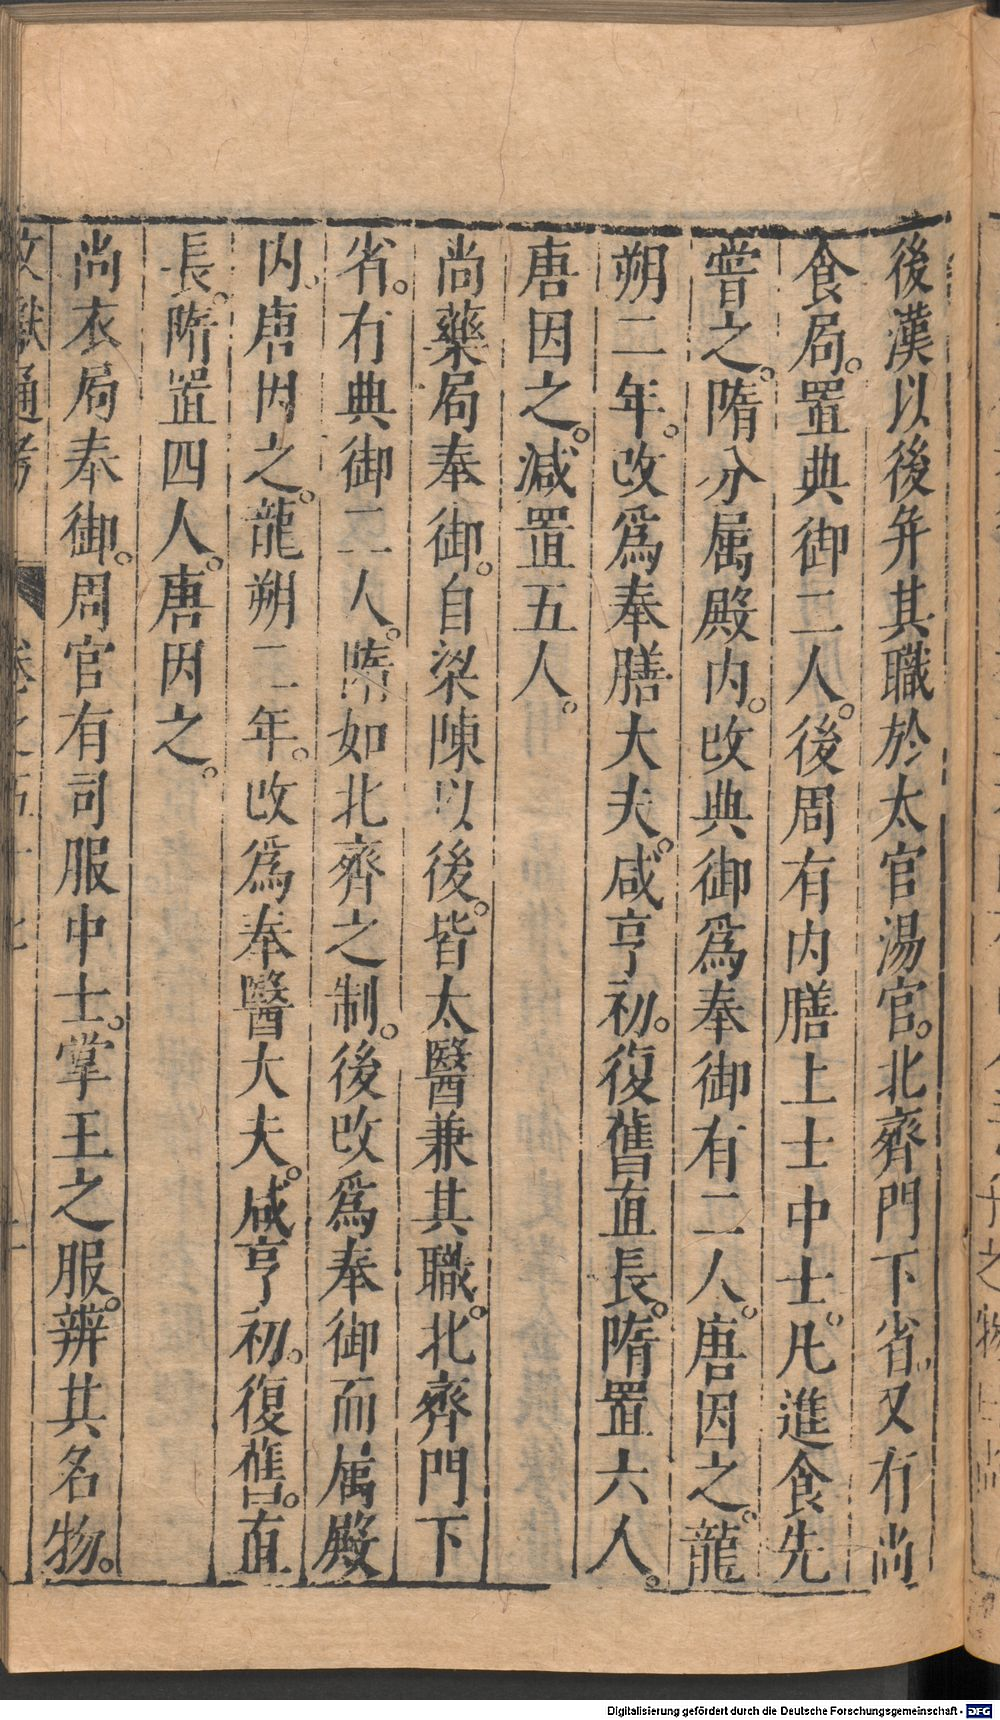 後漢以後并其職於太官湯官。北齊門下省。又有尚
食局。置典御二人。後周有内膳上士中士。凡進食先
嘗之。隋分属殿内。改典御爲奉御有二人。唐因之。龍
朔二年。改爲奉膳大夫。咸亨初。復舊直長。隋置六人。
唐因之。減置五人。
尚藥局奉御。自梁陳以後。皆太醫兼其職。北齊門下
省。有典御二人。隋如北齊之制。後改爲奉御而属殿
内。唐因之。龍朔二年。改爲奉醫大夫。咸亨初。復舊。直
長。隋置四人。唐因之。
尚衣局奉御。周官有司服中士。掌王之服。辨其名物。
文獻通考 卷之五十七
Digitalisierung gefördert durch die Deutsche Forschungsgemeinschaft - DFG